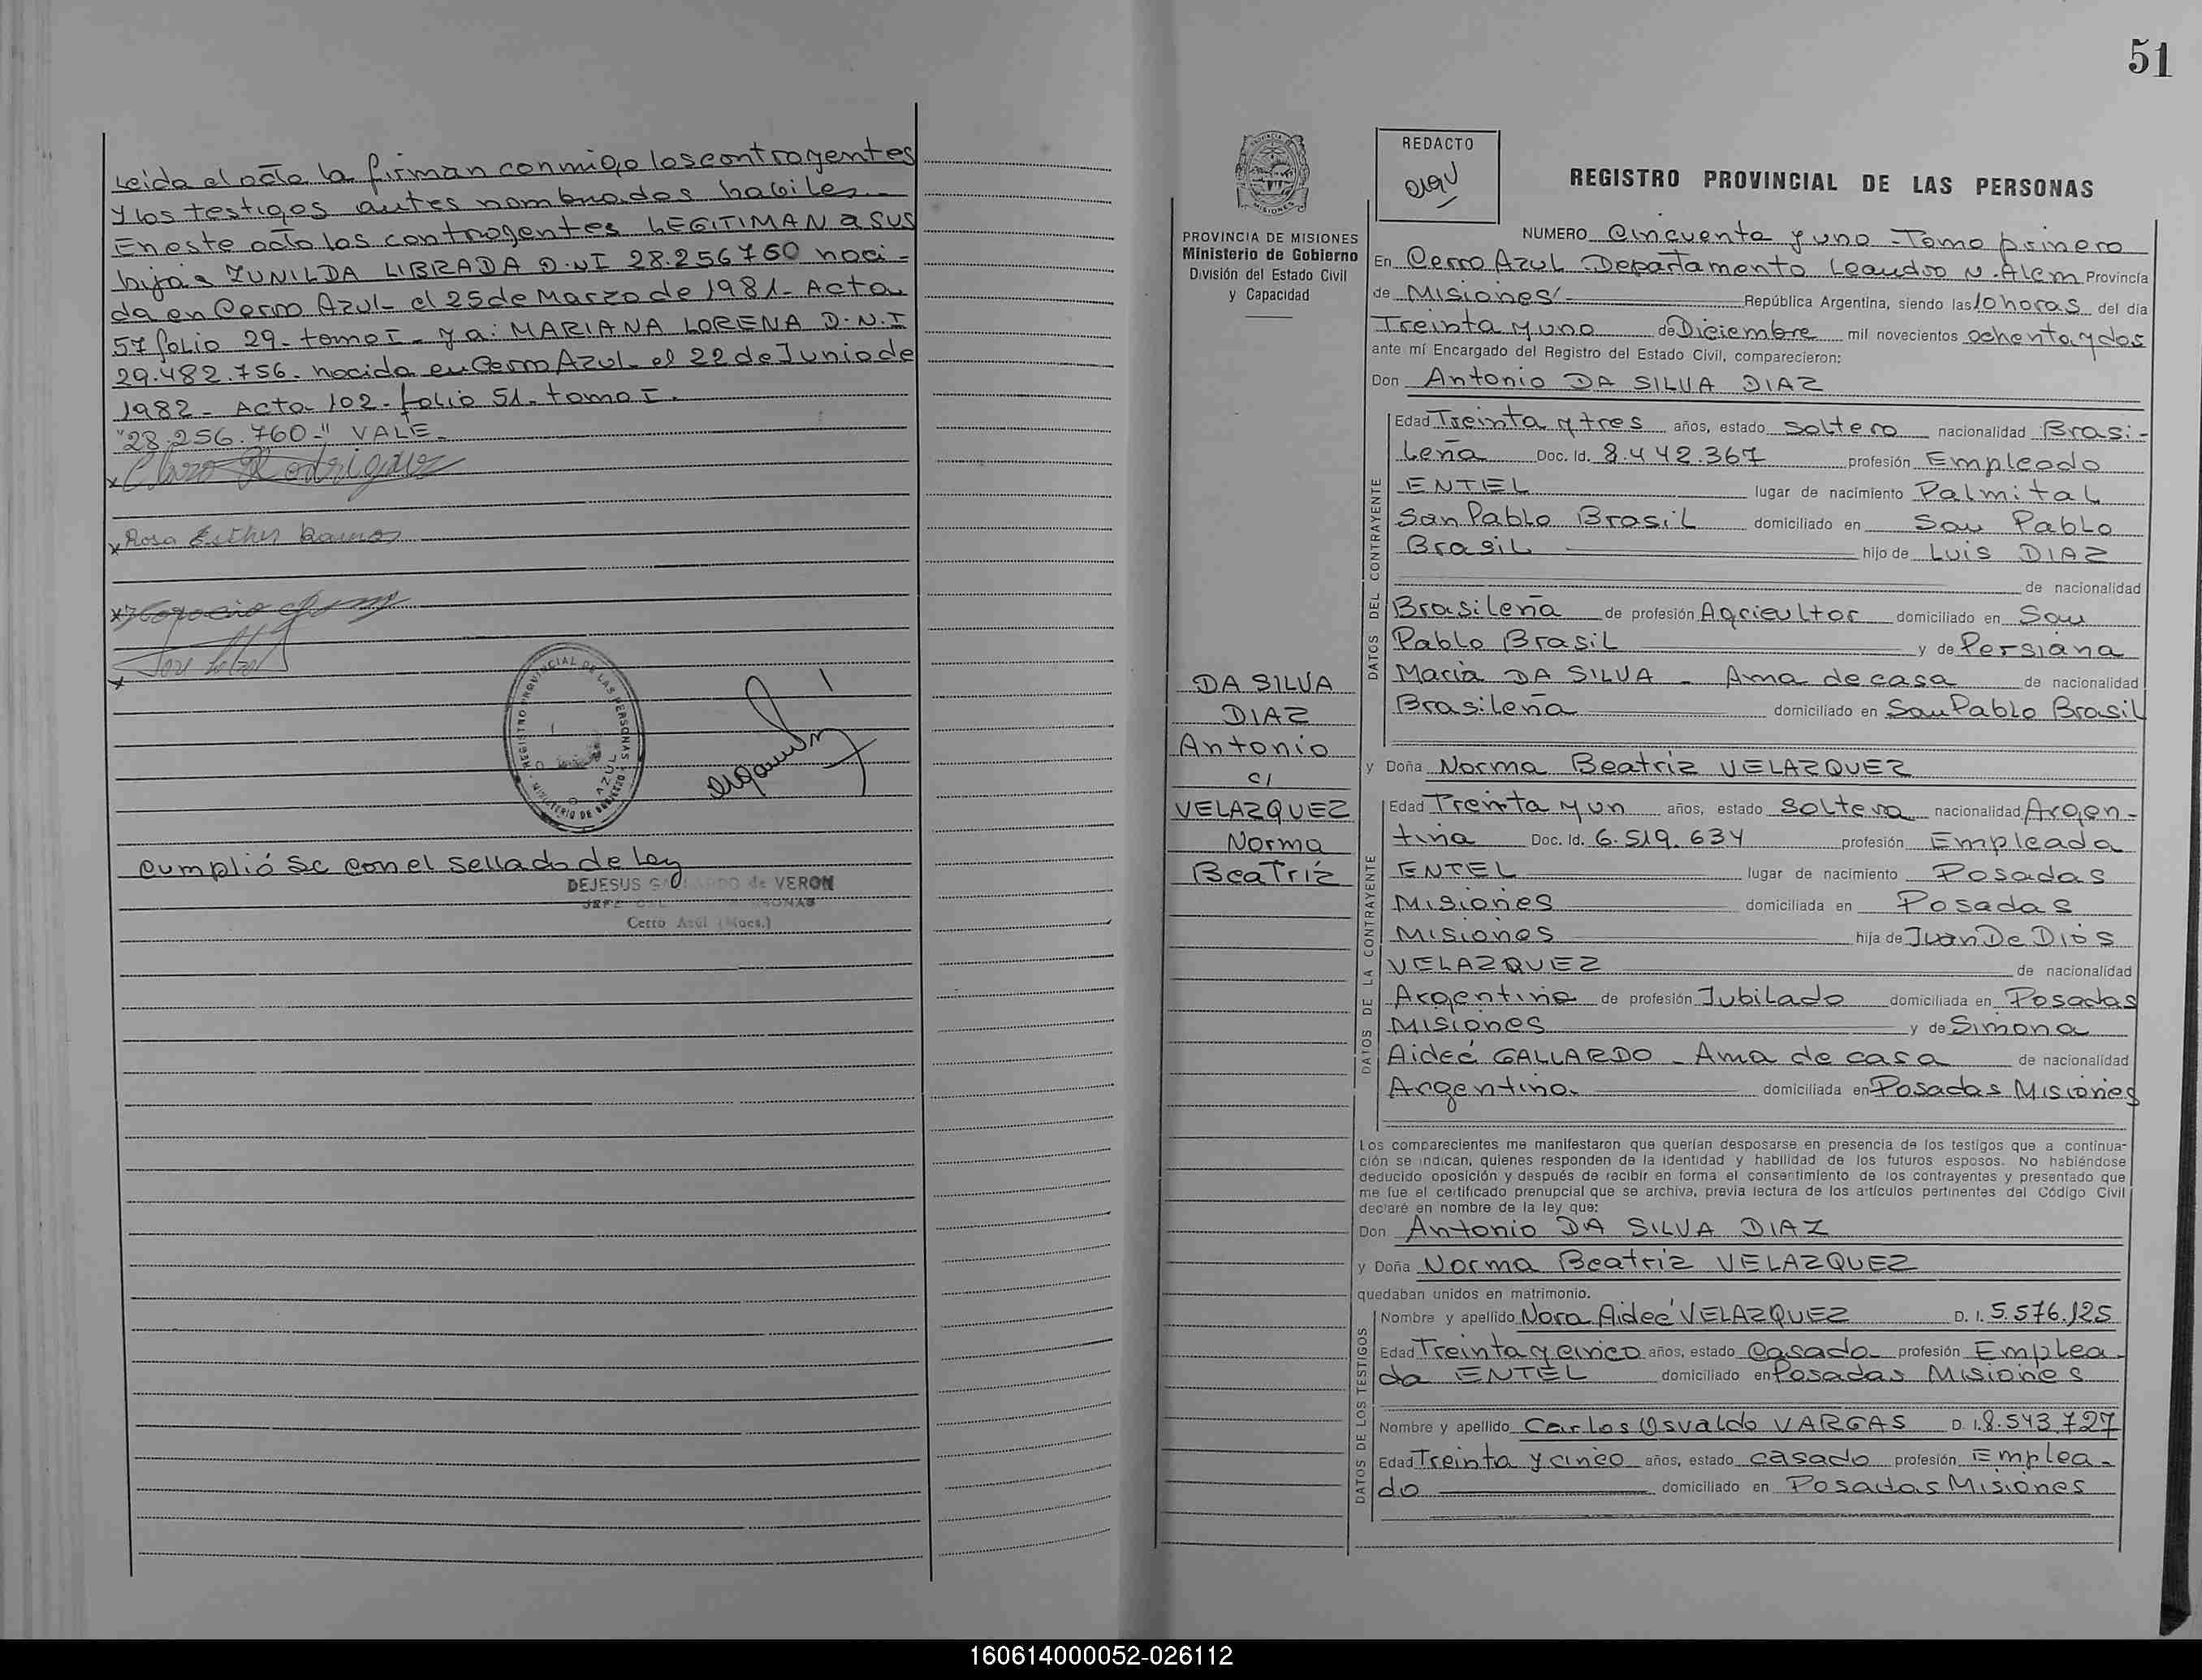 Leida el acta la firman conmigo los contrayentes
y los testigos antes nombrados habiles.
En este acto los contrayentes LEGITIMAN a sus
hijas ZUNILDA LIBRADA D.N.I 28.256760 naci-
da en Cerro Azul el 25 de Marzo de 1981 - Acta
57 folio 29 - tomo I - y a: MARIANA LORENA D.N.I
29.482.756. nacida en Cerro Azul - el 22 de Junio de
1982 - Acta 102 - folio 51 - tomo I.
"28.256.760-" VALE.
x Rodriguez
x Rosa Esther Ramos
x
x
REGISTRO PROVINCIAL DE LAS PERSONAS
MINISTERIO DE GOBIERNO
AZUL
Cumplió se con el sellado de Ley
DEJESUS GALLARDO de VERON
JEFE
Cerro Azul (Mnes.)
51
PROVINCIA DE MISIONES
Ministerio de Gobierno
División del Estado Civil
y Capacidad
DA SILVA
DIAZ
Antonio
c/
VELAZQUEZ
Norma
Beatriz
REDACTO
REGISTRO PROVINCIAL DE LAS PERSONAS
NUMERO Cincuenta y uno - Tomo primero
En Cerro Azul Departamento Leandro N. Alem Provincia
de Misiones República Argentina, siendo las 10 horas del día
Treinta y uno de Diciembre mil novecientos ochenta y dos
ante mí Encargado del Registro del Estado Civil, comparecieron:
Don Antonio DA SILVA DIAZ
DATOS DEL CONTRAYENTE
Edad Treinta y tres años, estado soltero nacionalidad Brasi-
leña Doc. Id. 8.442.367 profesión Empleado
ENTEL lugar de nacimiento Palmital
San Pablo Brasil domiciliado en San Pablo
Brasil hijo de Luis DIAZ
de nacionalidad
Brasileña de profesión Agricultor domiciliado en San
Pablo Brasil y de Persiana
Maria DA SILVA - Ama de casa de nacionalidad
Brasileña domiciliado en San Pablo Brasil
y Doña Norma Beatriz VELAZQUEZ
DATOS DE LA CONTRAYENTE
Edad Treinta y un años, estado soltera nacionalidad Argen-
tina Doc. Id. 6.519.634 profesión Empleada
ENTEL lugar de nacimiento Posadas
Misiones domiciliada en Posadas
Misiones hija de Juan De Dios
VELAZQUEZ de nacionalidad
Argentina de profesión Jubilado domiciliada en Posadas
Misiones y de Simona
Aideé GALLARDO - Ama de casa de nacionalidad
Argentina domiciliada en Posadas Misiones
Los comparecientes me manifestaron que querían desposarse en presencia de los testigos que a continua-
ción se indican, quienes responden de la identidad y habilidad de los futuros esposos. No habiéndose
deducido oposición y después de recibir en forma el consentimiento de los contrayentes y presentado que
me fue el certificado prenupcial que se archiva, previa lectura de los artículos pertinentes del Código Civil
declaré en nombre de la ley que:
Don Antonio DA SILVA DIAZ
y Doña Norma Beatriz VELAZQUEZ
quedaban unidos en matrimonio.
DATOS DE LOS TESTIGOS
Nombre y apellido Nora Aideé VELAZQUEZ D. I. 5.576.125
Edad Treinta y cinco años, estado Casada profesión Emplea-
da ENTEL domiciliado en Posadas Misiones
Nombre y apellido Carlos Osvaldo VARGAS D. I. 8.543.727
Edad Treinta y cinco años, estado casado profesión Emplea-
do domiciliado en Posadas Misiones
160614000052-026112